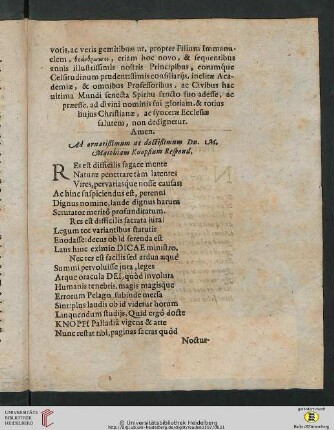 votis, ac veris gemitibus ut, propter Filium Immanu-
elem, hoc novo, & sequentibus
annis illustrissimis nostris Principibus, eorumque
Celsitudinum prudentissimis consiliarijs, inclitæ Aca-
demiæ, & omnibus Professoribus, ac Civibus hac
ultima Mundi senecta Spiritu sancto suo adesse, ac
præesse, ad divini nominis sui gloriam & totius
hujus Christianæ, ac synceræ Ecclesiæ
salutem, non dedignetur.
Amen.
Ad ornatissimum ac doctissimum Dn. M.
Matthiam Knopfium Respond.
RES est difficilis sagace mente
Naturæ penetrare tàm latentes
Vires, pervariasque nosse causas:
Ac hinc suspiciendus est, perenni
Dignus nomine, laude dignus harum
Scrutator meritò profunditatum.
Res est difficilis sacrata jura
Legum tot variantibus statutis
Enodasse: decus ob id ferenda est
Laus hinc eximio DICAE ministro.
Nec res est facilis sed ardua æquè
Summi pervoluisse jura, leges
Atque oracula DEI, quòd involuta
Humanis tenebris, magis magisque
Errorum Pelago, subinde mersa
Sint: plus laudis ob id videtur horum
Linquendum studijs. Quid ergò docte
KNOPFI Palladiâ vigens & arte
Nunc restat tibi, paginas sacras quòd
Noctur-
UNIVERSITÄTS-
BIBLIOTHEK
HEIDELBERG
© Universitätsbibliothek Heidelberg